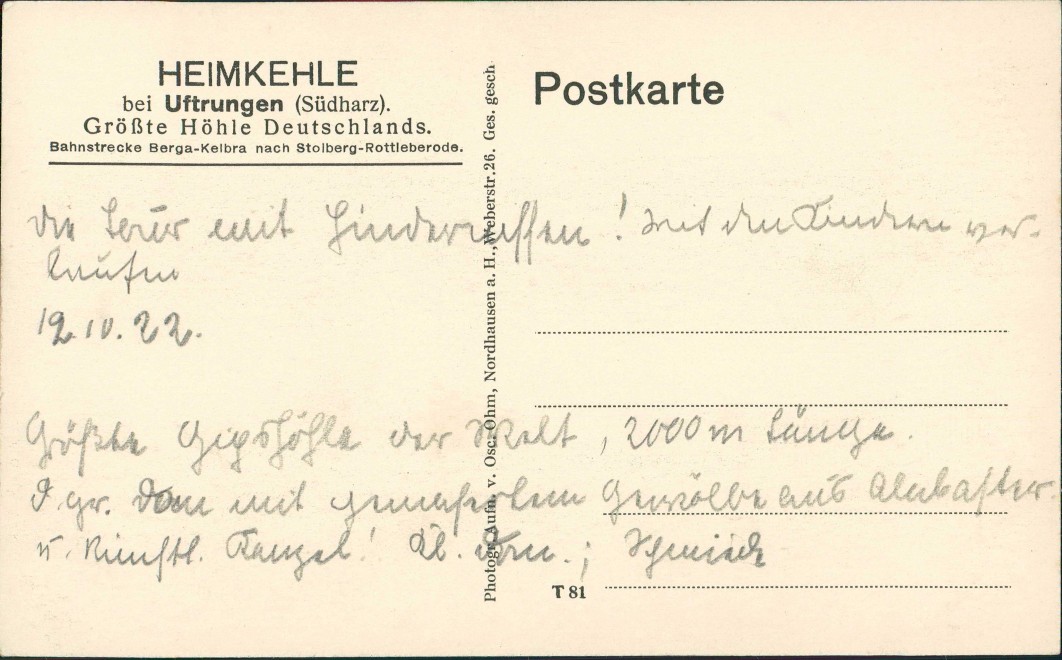 HEIMKEHLE
bei Uftrungen (Südharz).
Größte Höhle Deutschlands.
Bahnstrecke Berga-Kelbra nach Stolberg-Rottleberode.
Postkarte
Photogr. Aufn. v. Osc. Ohm, Nordhausen a. H., Weberstr. 26. Ges. gesch
die Tour mit Hindernissen! mit den Kindern ver-
laufen
12.10.22.
Größte Gipshöhle der Welt, 2000 m Länge.
gr. Dom mit Gewölbe aus Alabaster
u. künstl. Kanzel! Kl. Dom.;
T 81